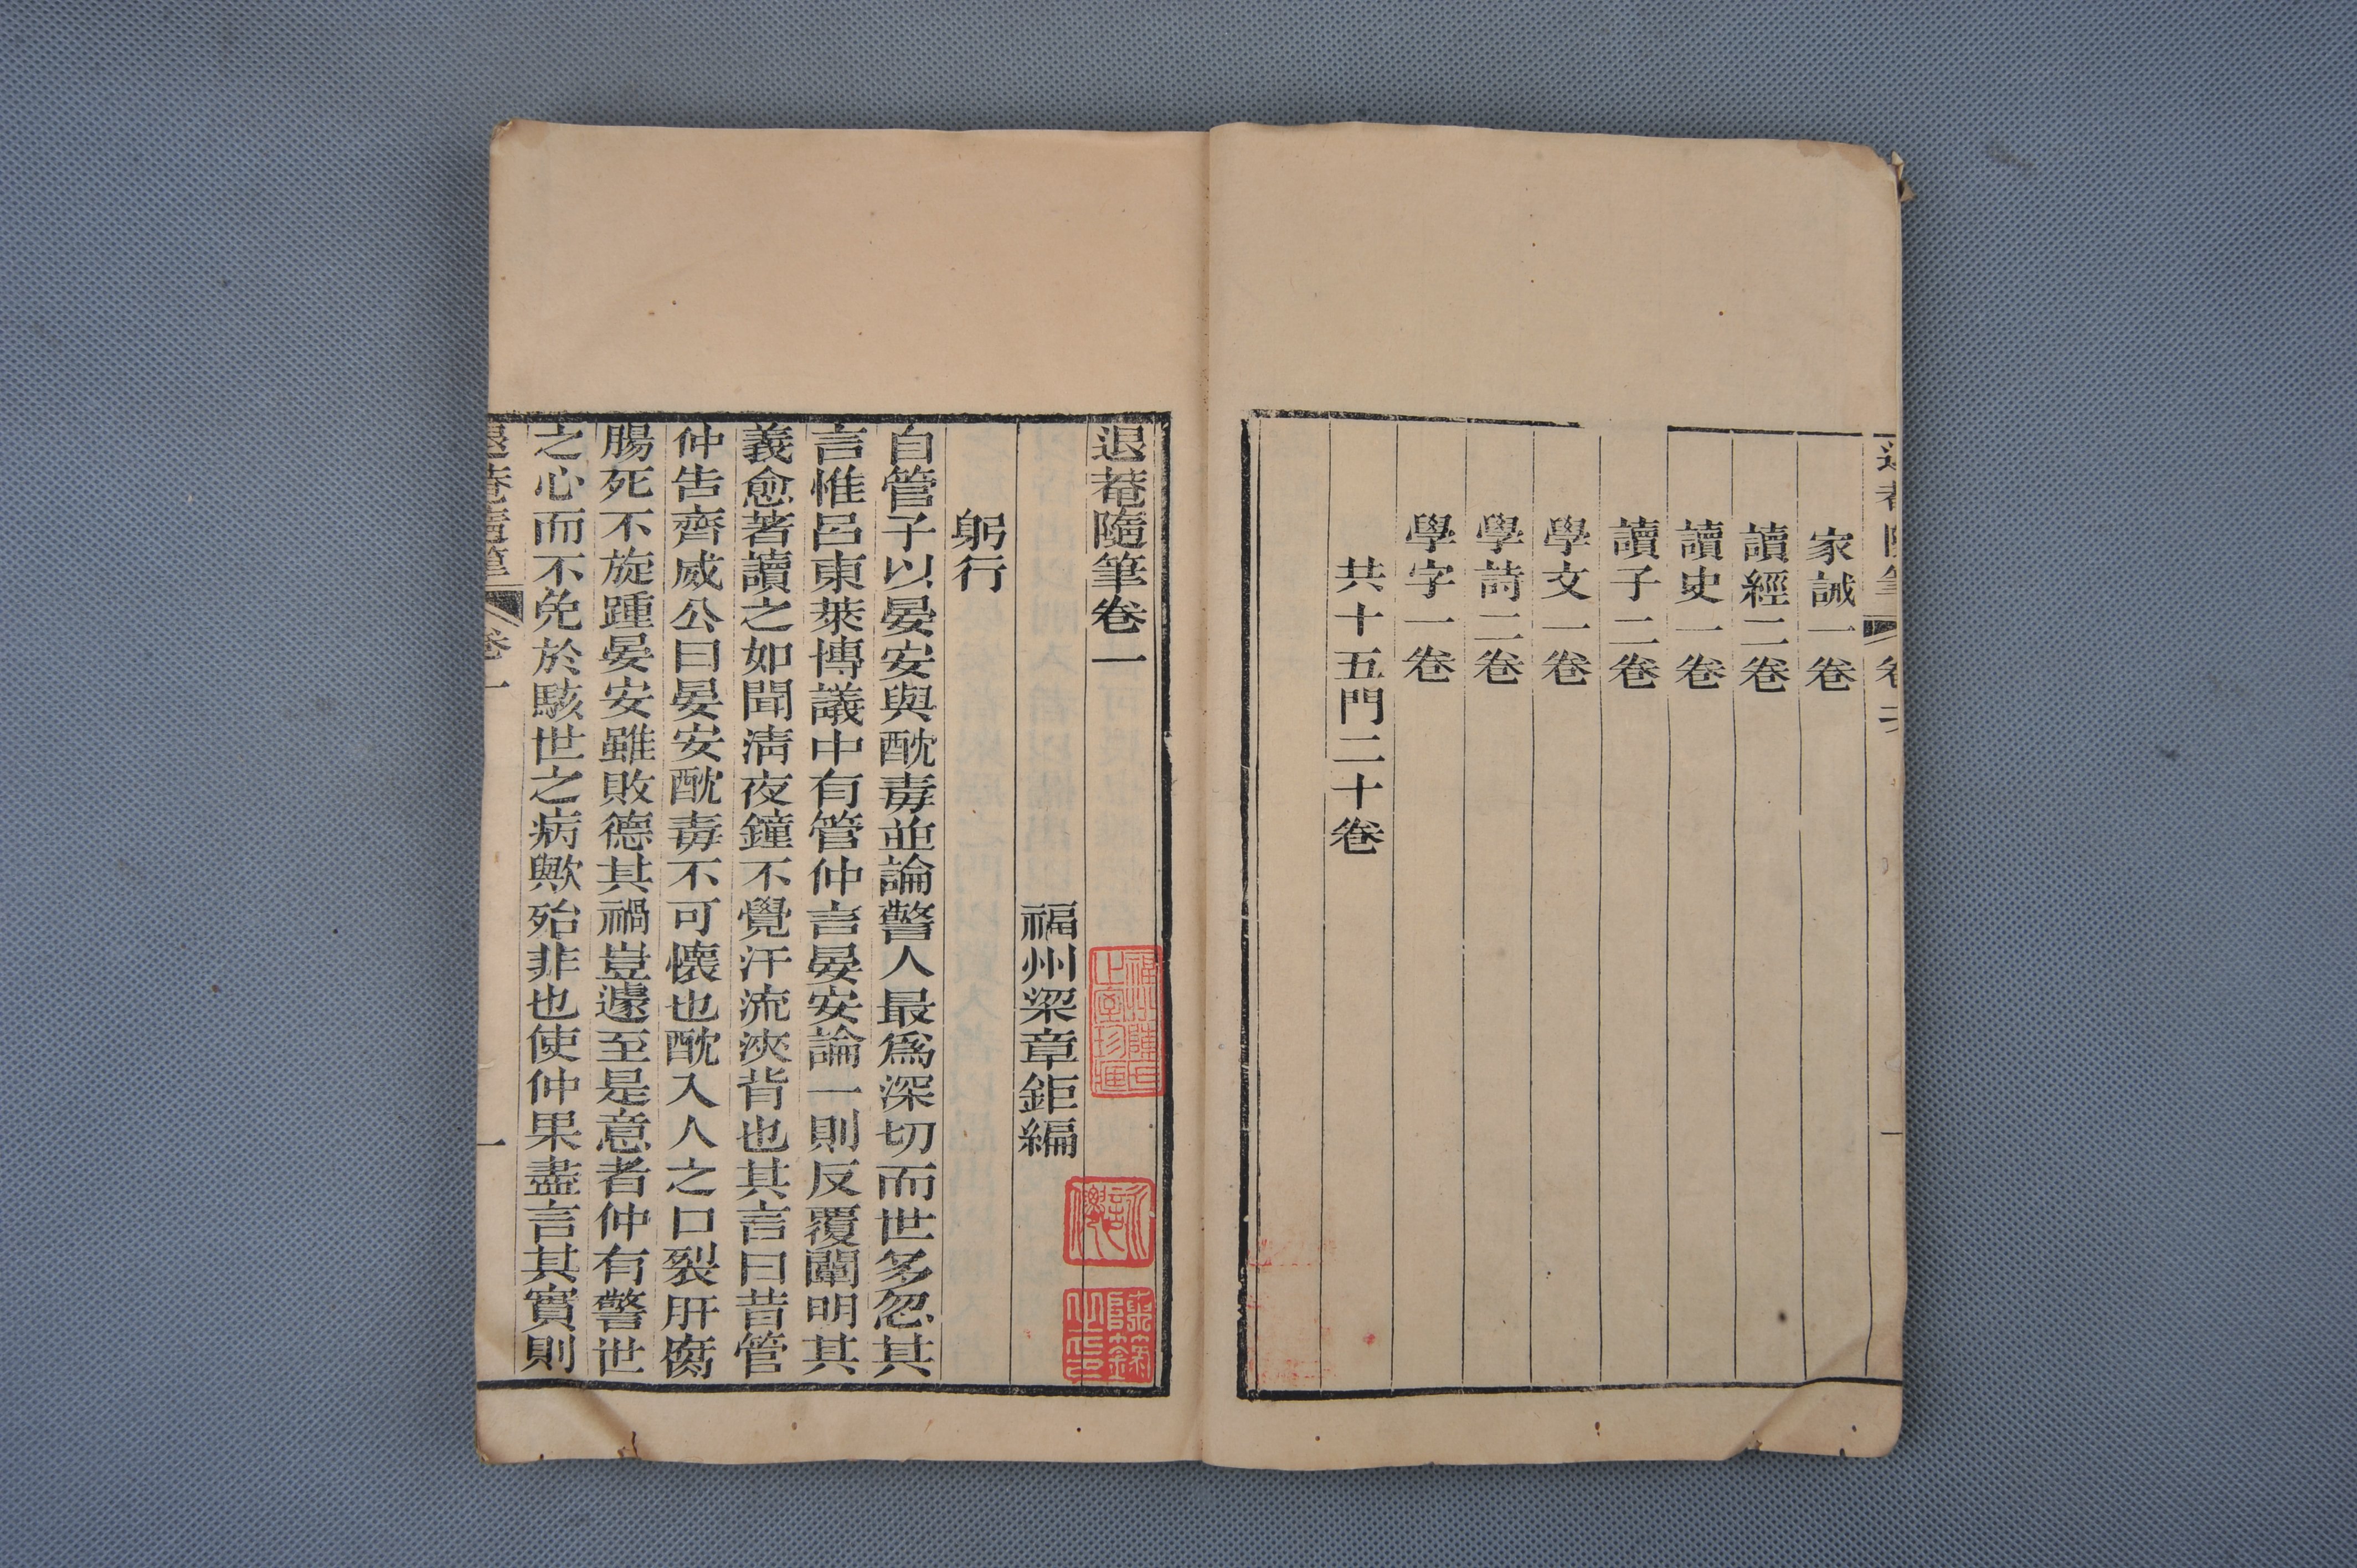 家誡一卷
讀經二卷
讀史一卷
讀子二卷
學文一卷
學詩二卷
學字一卷
共十五門二十卷
退菴隨筆卷一
福州梁章鉅編
躬行
自管子以晏安與酖毒並論警人最爲深切而世多忽其
言惟呂東萊博議中有管仲言晏安論一則反覆闡明其
義愈著讀之如聞清夜鐘不覺汗流浹背也其言曰昔管
仲告齊威公曰晏安酖毒不可懷也酖入人之口裂肝腐
腸死不旋踵晏安雖敗德其禍豈遽至是意者仲有警世
之心而不免於駭世之病歟殆非也使仲果盡言其實則
退菴隨筆 卷一 一